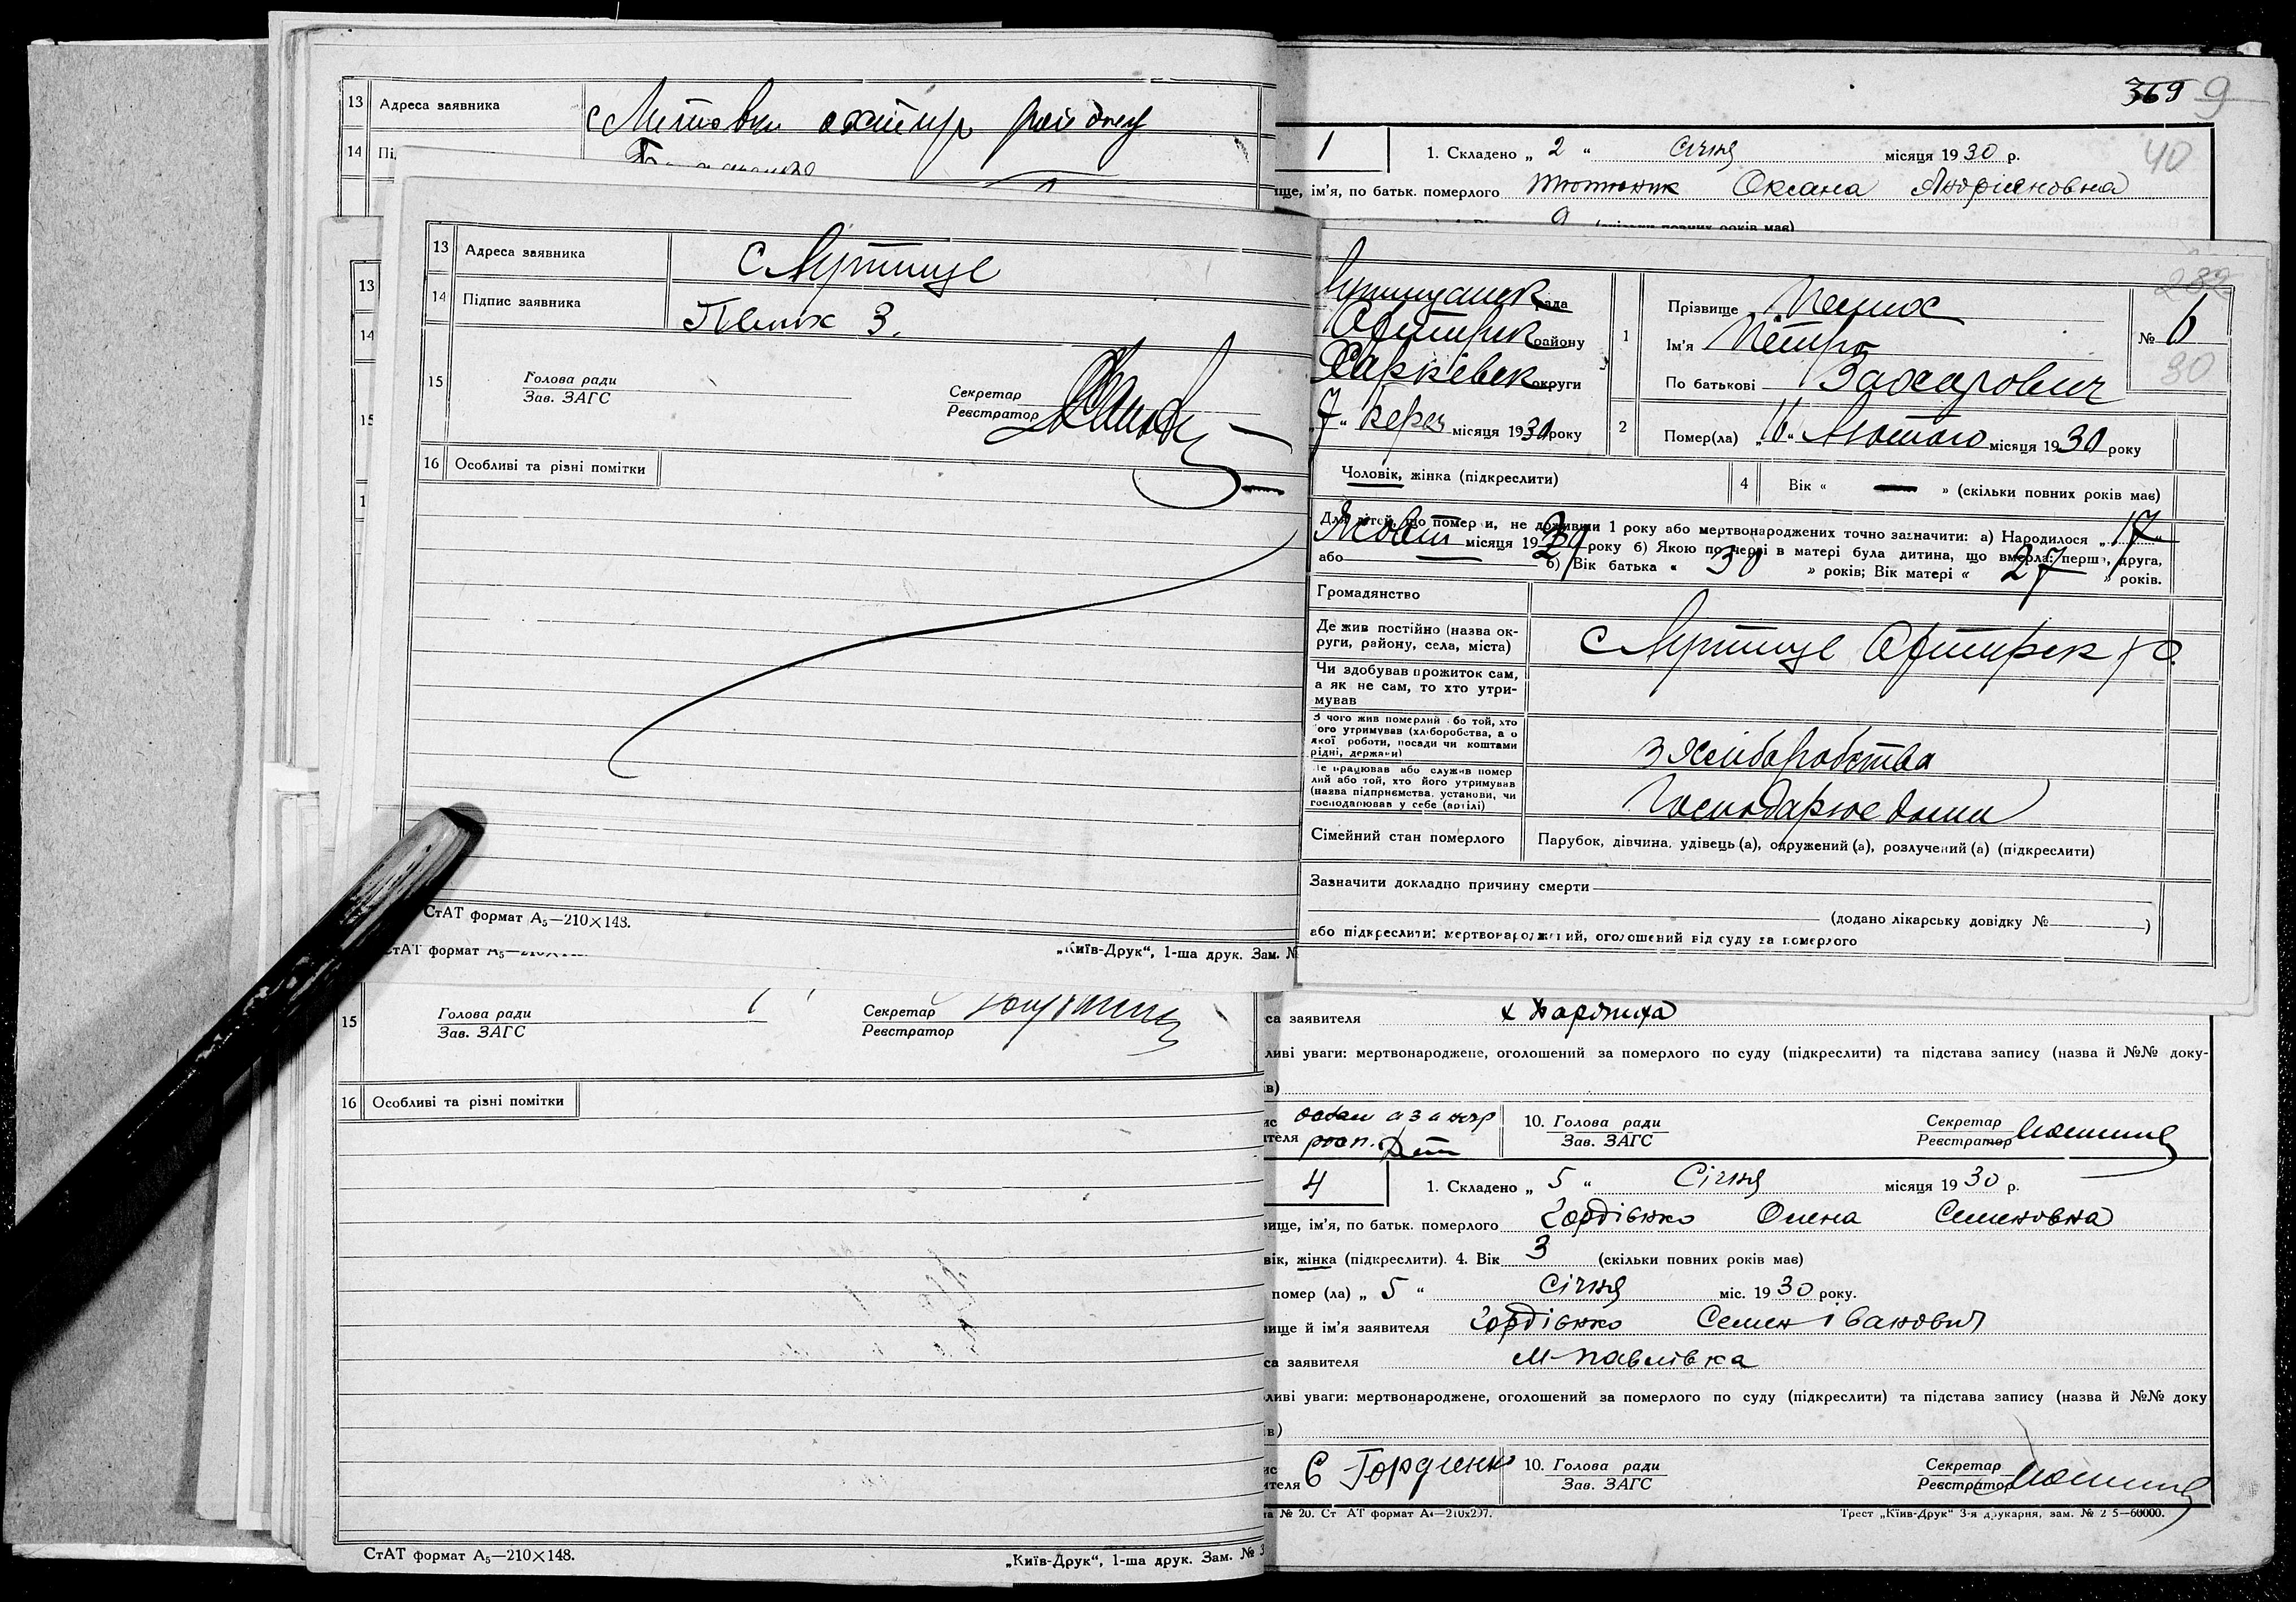 13 Адреса заявника
14
13 Адреса заявника с Лутище
14 Підпис заявника Пелих З.
15 Голова ради
Зав. ЗАГС
Секретар
Реєстратор
16 Особливі та різні помітки
СтАТ формат А₅—210×148.
„Київ-Друк“, 1-ша друк. Зам. №
13
14
15
15 Голова ради
Зав. ЗАГС
Секретар
Реєстратор
16 Особливі та різні помітки
СтАТ формат А₅—210×148.
„Київ-Друк“, 1-ша друк. Зам. № 3
369 9
40
1 1. Складено „ 2 “ Січня місяця 1930 р.
ім’я, по батьк. померлого Тютюник Оксана Андріяновна
9 (скільки повних років має)
282
рада
району
Харківськ округи
7 “ місяця 1930 року
1 Прізвище Пелих
Ім’я Петро
По батькові Захарович
№ 6
30
2 Помер(ла) „16“ Лютого місяця 1930 року
Чоловік, жінка (підкреслити) 4 Вік « — » (скільки повних років має)
Для дітей, що померли, не доживши 1 року або мертвонароджених точно зазначити: а) Народилося „ 17 “
Жовт місяця 1929 року б) Якою по черзі в матері була дитина, що вмерла: перша, друга,
або б) Вік батька « 30 » років; Вік матері « 27 » років.
Громадянство
Де жив постійно (назва ок-
руги, району, села, міста) с Лутище
Чи здобував прожиток сам,
а як не сам, то хто утри-
мував
З чого жив померлий або той, хто
його утримував (хліборобства, а о
якої роботи, посади чи коштами
рідні, держави) з Хліборобства
Де працював або служив помер
лий або той, хто його утримував
(назва підприємства, установи, чи
господарював у себе (артілі) Господарює дома
Сімейний стан померлого Парубок, дівчина, удівець (а), одружений (а), розлучений (а) (підкреслити)
Зазначити докладно причину смерти
(додано лікарську довідку № )
або підкреслити: мертвонароджений, оголошений від суду за померлого
са заявителя
ливі уваги: мертвонароджене, оголошений за померлого по суду (підкреслити) та підстава запису (назва й №№ доку-
ів)
10. Голова ради
Зав. ЗАГС
Секретар
Реєстратор
4 1. Складено „ 5 “ Січня місяця 1930 р.
вище, ім’я, по батьк. померлого Гордієнко Олена Семеновна
вік, жінка (підкреслити). 4. Вік 3 (скільки повних років має)
помер (ла) „ 5 “ Січня міс. 1930 року.
вище й ім’я заявителя Гордієнко Семен Іванович
са заявителя М-Павлівка
ливі уваги: мертвонароджене, оголошений за померлого по суду (підкреслити) та підстава запису (назва й №№ доку
ів)
ителя С Гордиенк 10. Голова ради
Зав. ЗАГС
Секретар
Реєстратор
№ 20. Ст АТ формат А₄—210х297.
Трест „Київ-Друк“ 3-я друкарня, зам. № 2 5—60000.